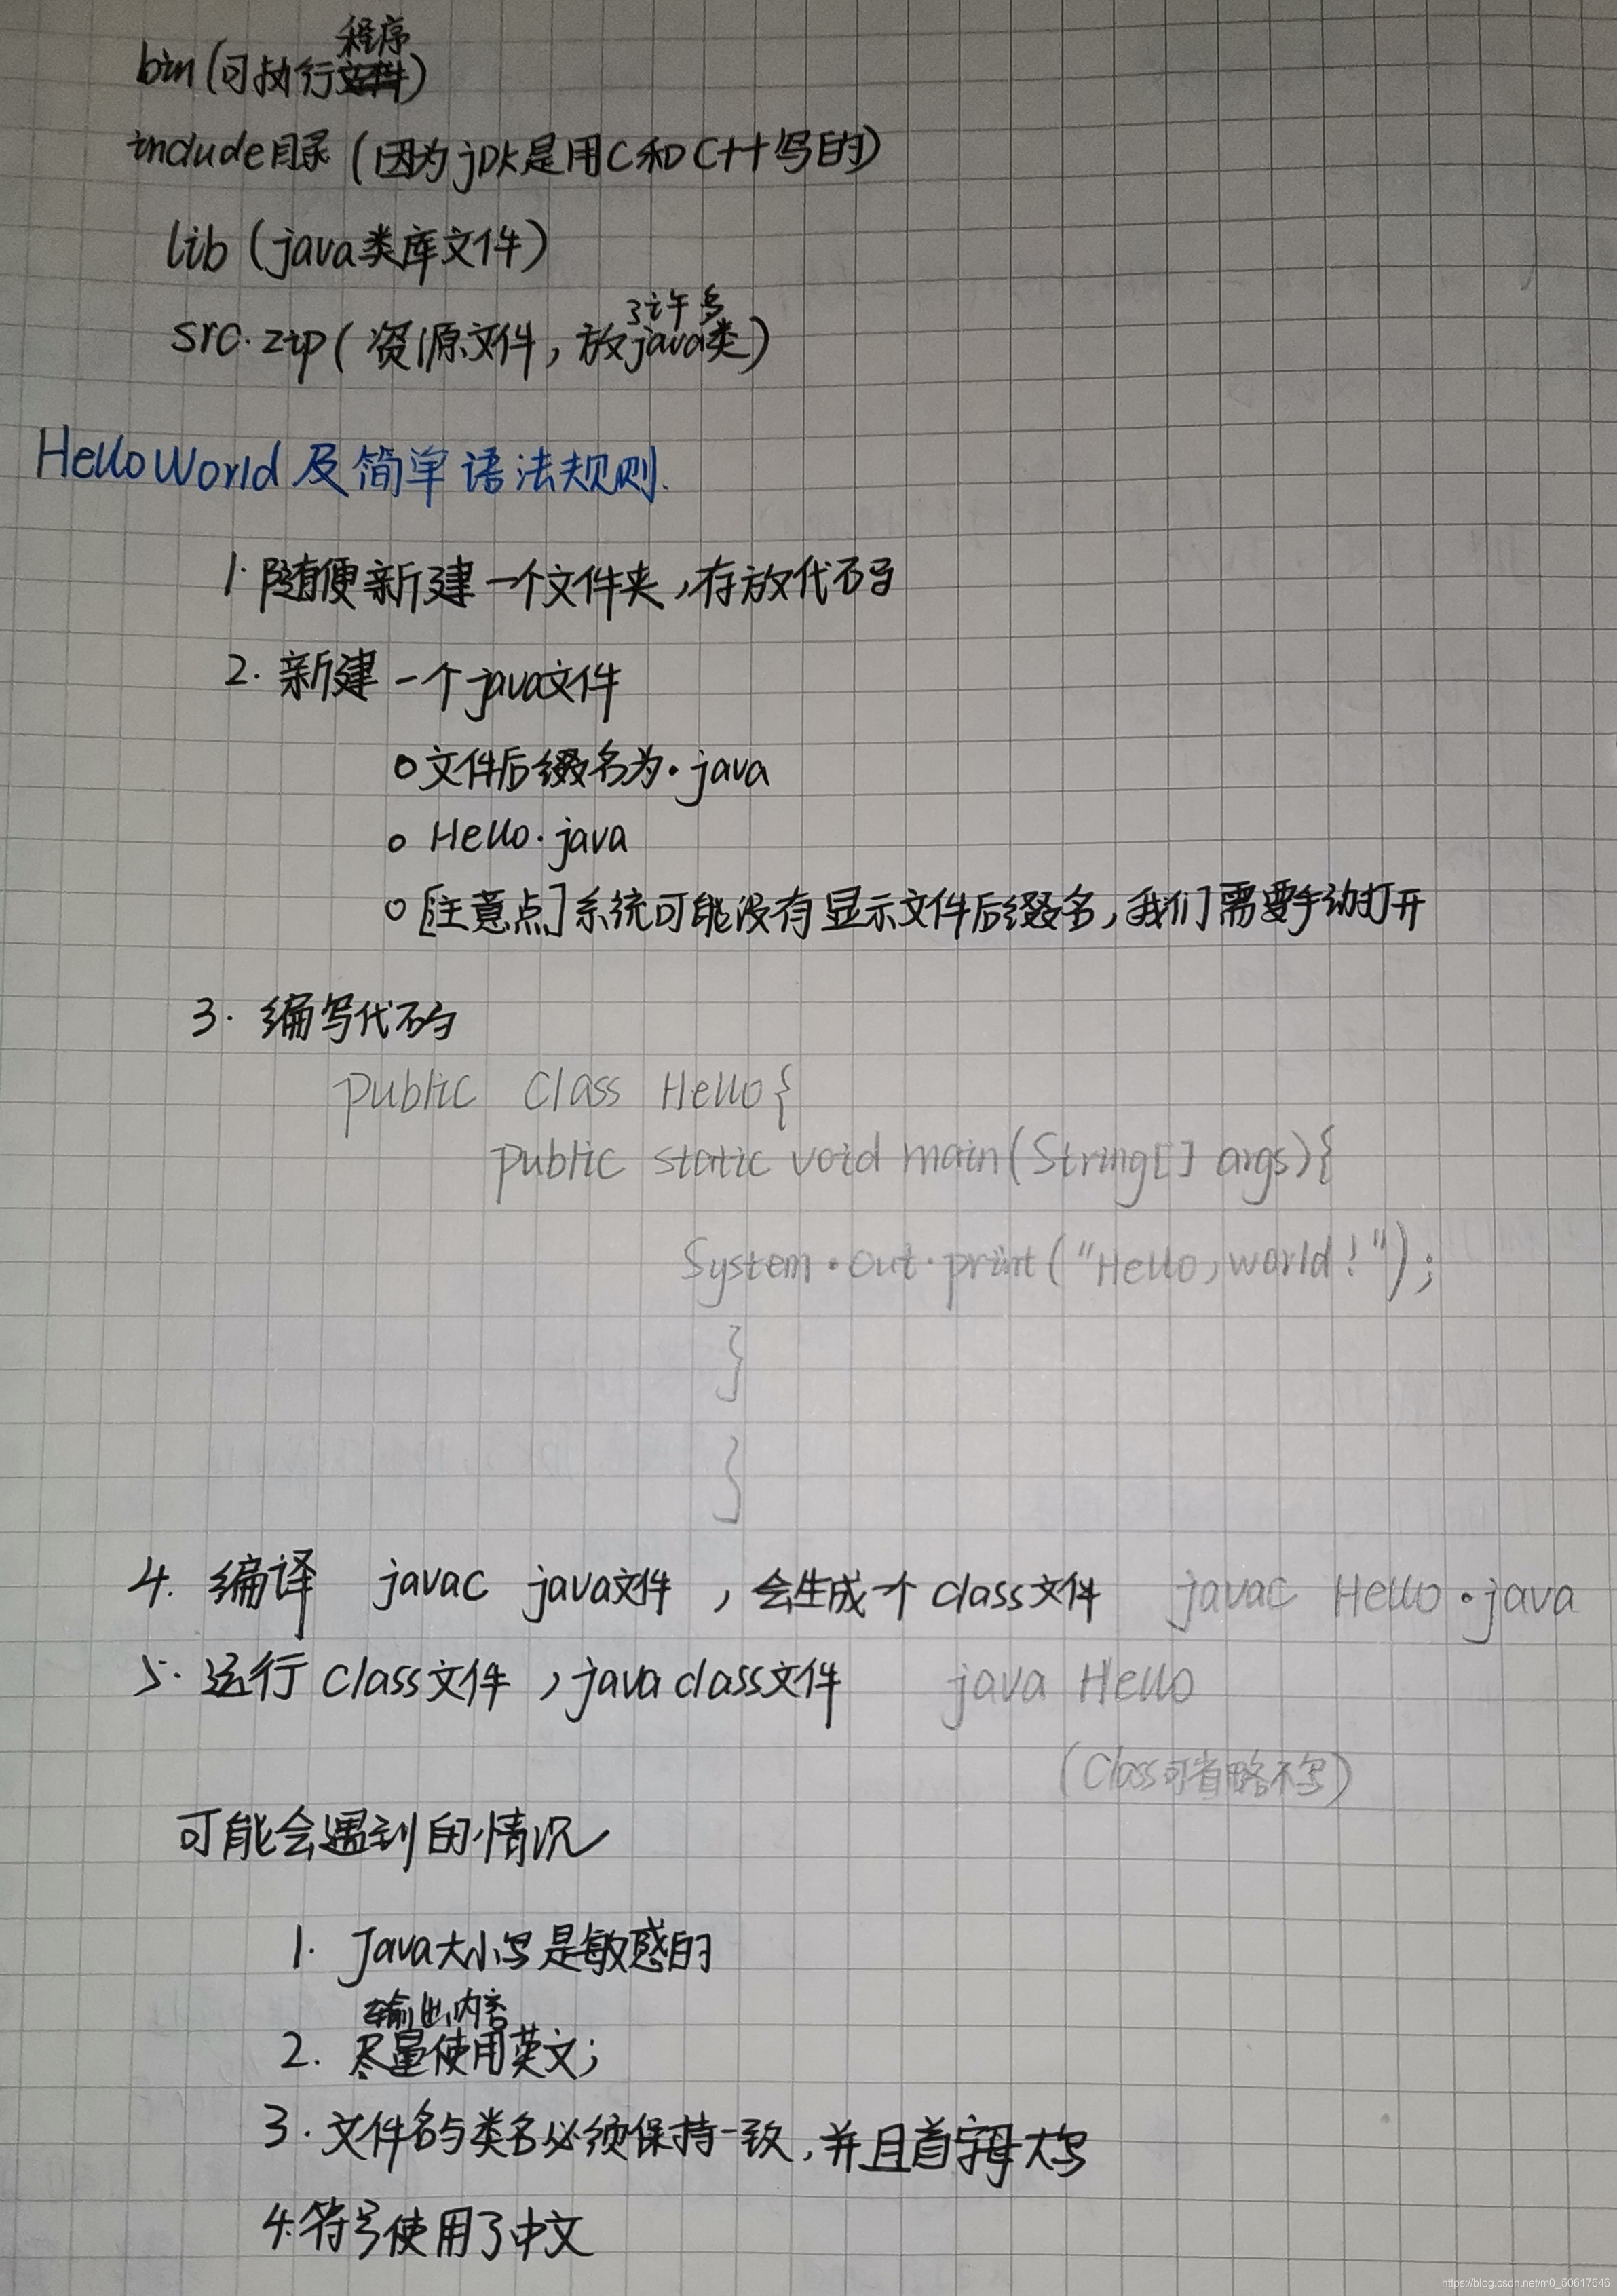 bin(可执行程序)
include目录(因为jDK是用C和C++写的)
lib(java类库文件)
src.zip(资源文件,放了许多java类)
HelloWorld及简单语法规则.
1.随便新建一个文件夹,存放代码
2.新建一个java文件
o文件后缀名为.java
o Hello.java
o[注意点]系统可能没有显示文件后缀名,我们需要手动打开
3.编写代码
public Class Hello{
public static void main(String[] args){
System.out.print("Hello,world!");
}
}
4.编译 javac java文件,会生成一个class文件 javac Hello.java
5.运行Class文件,java class文件 java Hello
(Class可省略不写)
可能会遇到的情况
1.Java大小写是敏感的
输出内容
2.尽量使用英文;
3.文件名与类名必须保持一致,并且首字母大写
4.符号使用了中文
https://blog.csdn.net/m0_50617646